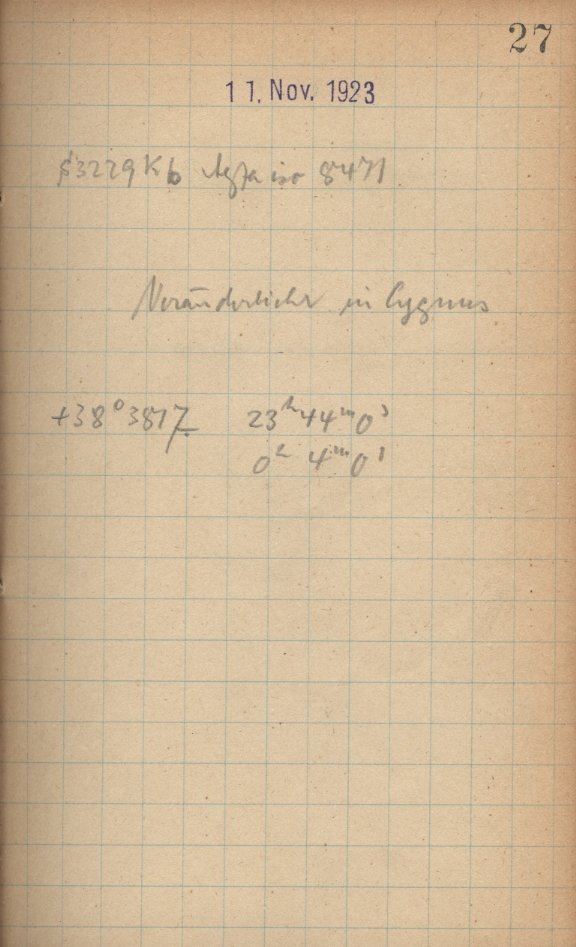 27
11. Nov. 1923
S3229 Kb Agfa iso 8471
Veränderlicher in Cygnus
+38°3817 23ʰ44ᵐ0ˢ
0ʰ 4ᵐ0ˢ